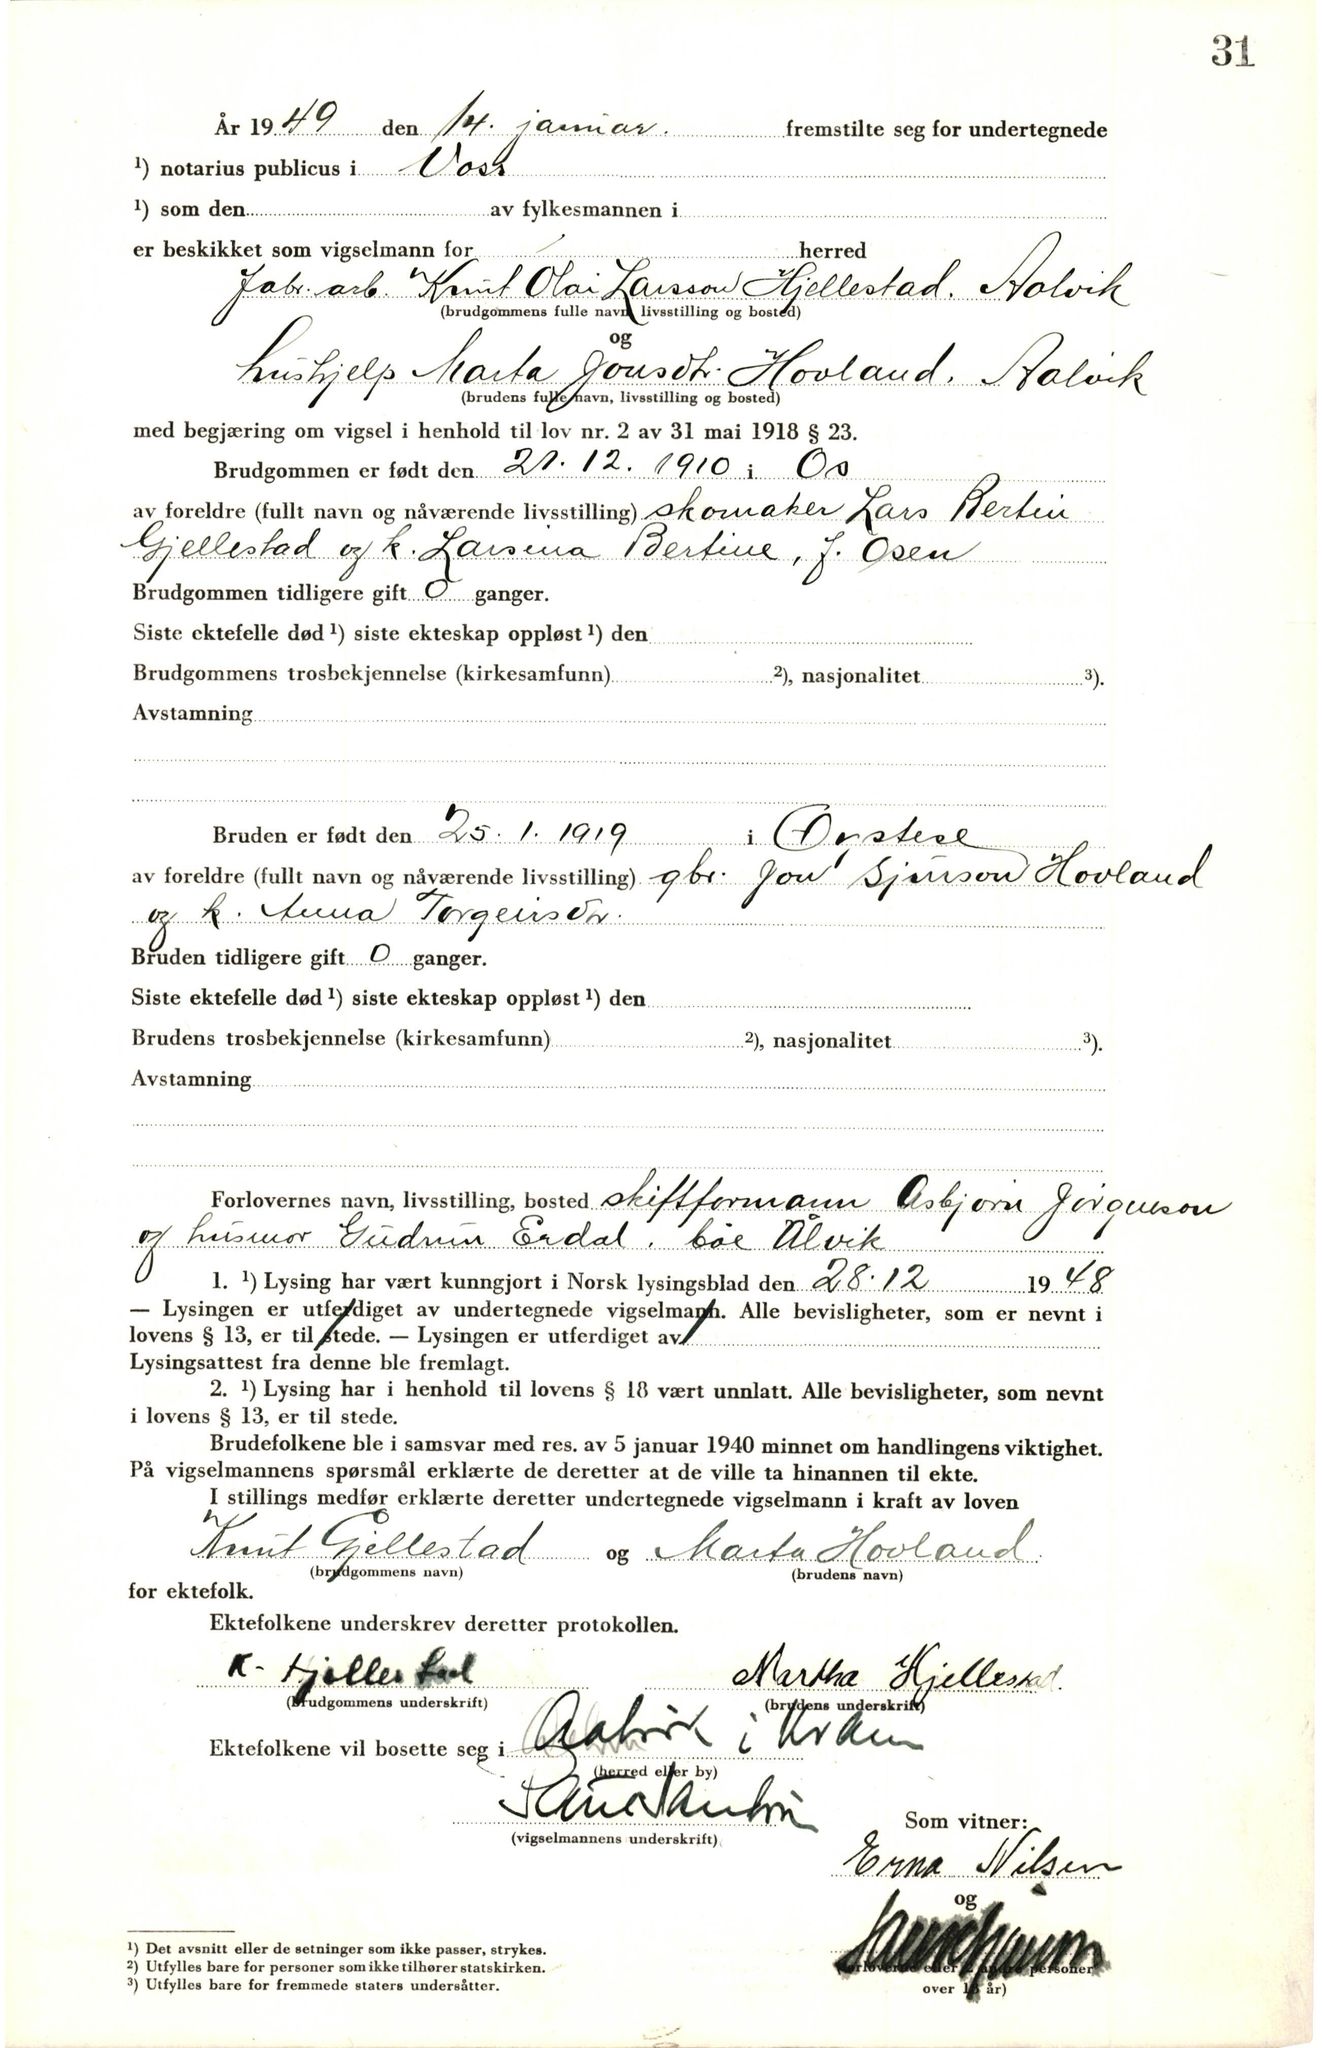 31
År 1949 den 14. januar. fremstilte seg for undertegnede
¹) notarius publicus i Voss
¹) som den av fylkesmannen i
er beskikket som vigselmann for herred
fabr. arb. Knut Olai Larsson Hjellestad. Aalvik
(brudgommens fulle navn, livsstilling og bosted)
og
hushjelp Marta Jonsdtr. Hovland. Aalvik
(brudens fulle navn, livsstilling og bosted)
med begjæring om vigsel i henhold til lov nr. 2 av 31 mai 1918 § 23.
Brudgommen er født den 21. 12. 1910 i Os
av foreldre (fullt navn og nåværende livsstilling) skomaker Lars Bertin
Gjellestad og k. Larsina Bertine, f. Osen
Brudgommen tidligere gift 0 ganger.
Siste ektefelle død ¹) siste ekteskap oppløst ¹) den
Brudgommens trosbekjennelse (kirkesamfunn) ²), nasjonalitet ³).
Avstamning
Bruden er født den 25. 1. 1919 i Øystese
av foreldre (fullt navn og nåværende livsstilling) gbr. Jon Sjurson Hovland
og k. Anna Torgeirsdtr.
Bruden tidligere gift 0 ganger.
Siste ektefelle død ¹) siste ekteskap oppløst ¹) den
Brudens trosbekjennelse (kirkesamfunn) ²), nasjonalitet ³).
Avstamning
Forlovernes navn, livsstilling, bosted skiftformann Asbjørn Jørgenson
og husmor Gudrun Erdal. båe Ålvik
1. ¹) Lysing har vært kunngjort i Norsk lysingsblad den 28. 12 1948
— Lysingen er utferdiget av undertegnede vigselmann. Alle bevisligheter, som er nevnt i
lovens § 13, er til stede. — Lysingen er utferdiget av
Lysingsattest fra denne ble fremlagt.
2. ¹) Lysing har i henhold til lovens § 18 vært unnlatt. Alle bevisligheter, som nevnt
i lovens § 13, er til stede.
Brudefolkene ble i samsvar med res. av 5 januar 1940 minnet om handlingens viktighet.
På vigselmannens spørsmål erklærte de deretter at de ville ta hinannen til ekte.
I stillings medfør erklærte deretter undertegnede vigselmann i kraft av loven
Knut Gjellestad og Marta Hovland.
(brudgommens navn) (brudens navn)
for ektefolk.
Ektefolkene underskrev deretter protokollen.
K. Hjellestad Martha Hjellestad.
(Brudgommens underskrift) (brudens underskrift)
Ektefolkene vil bosette seg i Aalvik i Kvam
(herred eller by)
(vigselmannens underskrift)
Som vitner:
Erna Nilsen
og
(forloverne eller 2 andre personer
over 18 år)
¹) Det avsnitt eller de setninger som ikke passer, strykes.
²) Utfylles bare for personer som ikke tilhører statskirken.
³) Utfylles bare for fremmede staters undersåtter.